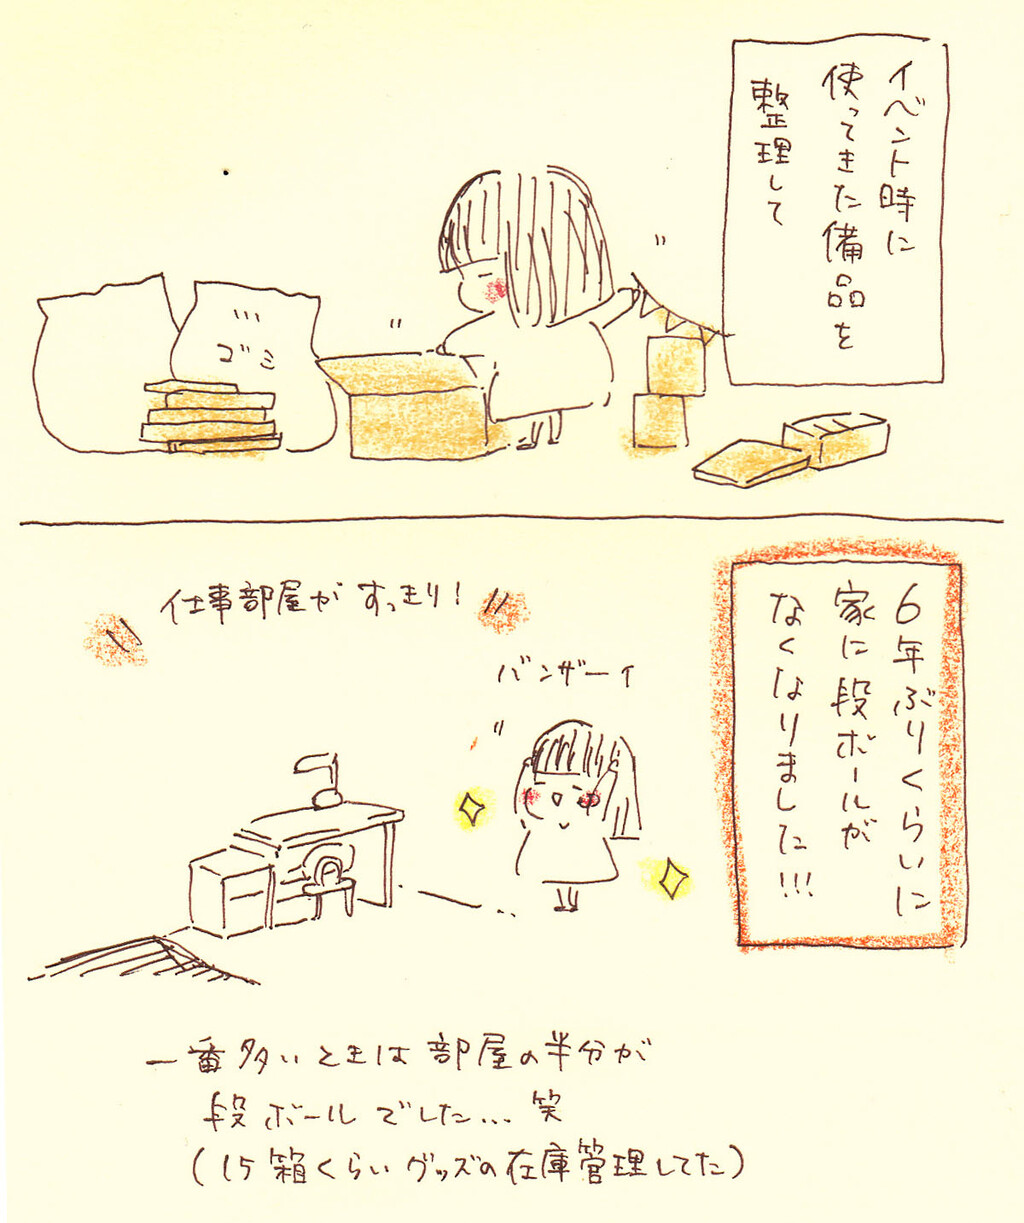 イベント時に
使ってきた備品を
整理して
ゴミ
6年ぶりくらいに
家に段ボールが
なくなりました!!!
仕事部屋がすっきり!
バンザーイ
一番多いときは部屋の半分が
段ボールでした...笑
(15箱くらいグッズの在庫管理してた)